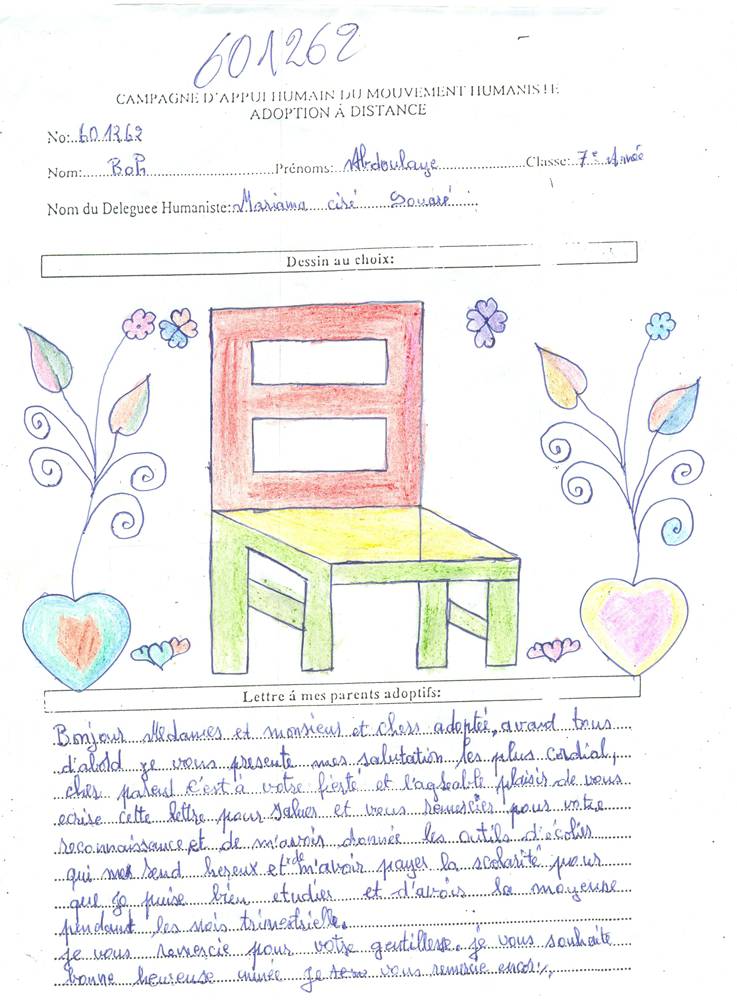 601262
CAMPAGNE D'APPUI HUMAIN DU MOUVEMENT HUMANISTE
ADOPTION À DISTANCE
No: 601262
Nom: Bah Prénoms: Abdoulaye Classe: 7e Année
Nom du Deleguee Humaniste: Mariama ciré Souaré
Dessin au choix:
Lettre á mes parents adoptifs:
Bonjour Medames et monsieur et chers adoptée, avand tous
d'abord je vous presente mes salutation les plus cordial,
cher parent c'est à votre fierté et l'agreable plaisir de vous
ecrise cette lettre pour saluer et vous remercier pour votre
reconnaissance et de m'avoir donnée les outils d'écolier
qui me send hereux et de m'avoir payer la scolarité pour
que je puise bien etudier et d'avoir la moyense
pendant les mois trimestrielle.
je vous remercie pour votre gentillesse. je vous souhaite
bonne heureuse année je vous remercie encor.